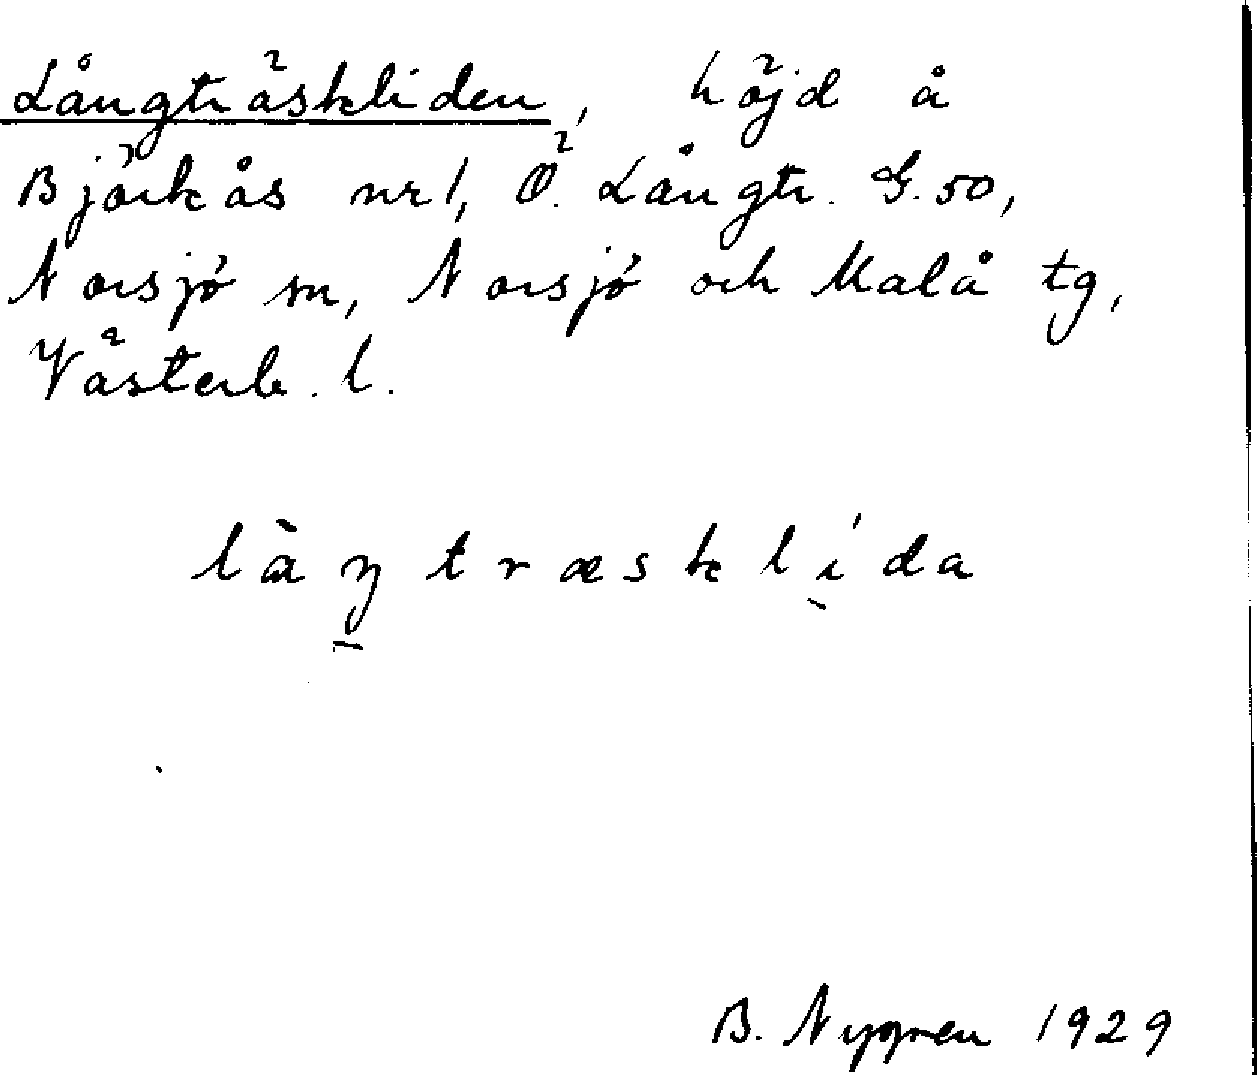 Långträskliden, höjd å
Björkås nr 1, Ö. Långtr. G. 50,
Norsjö sn, Norsjö och Malå tg,
Västerb. l.
làŋträsklída
B. Nygren 1929